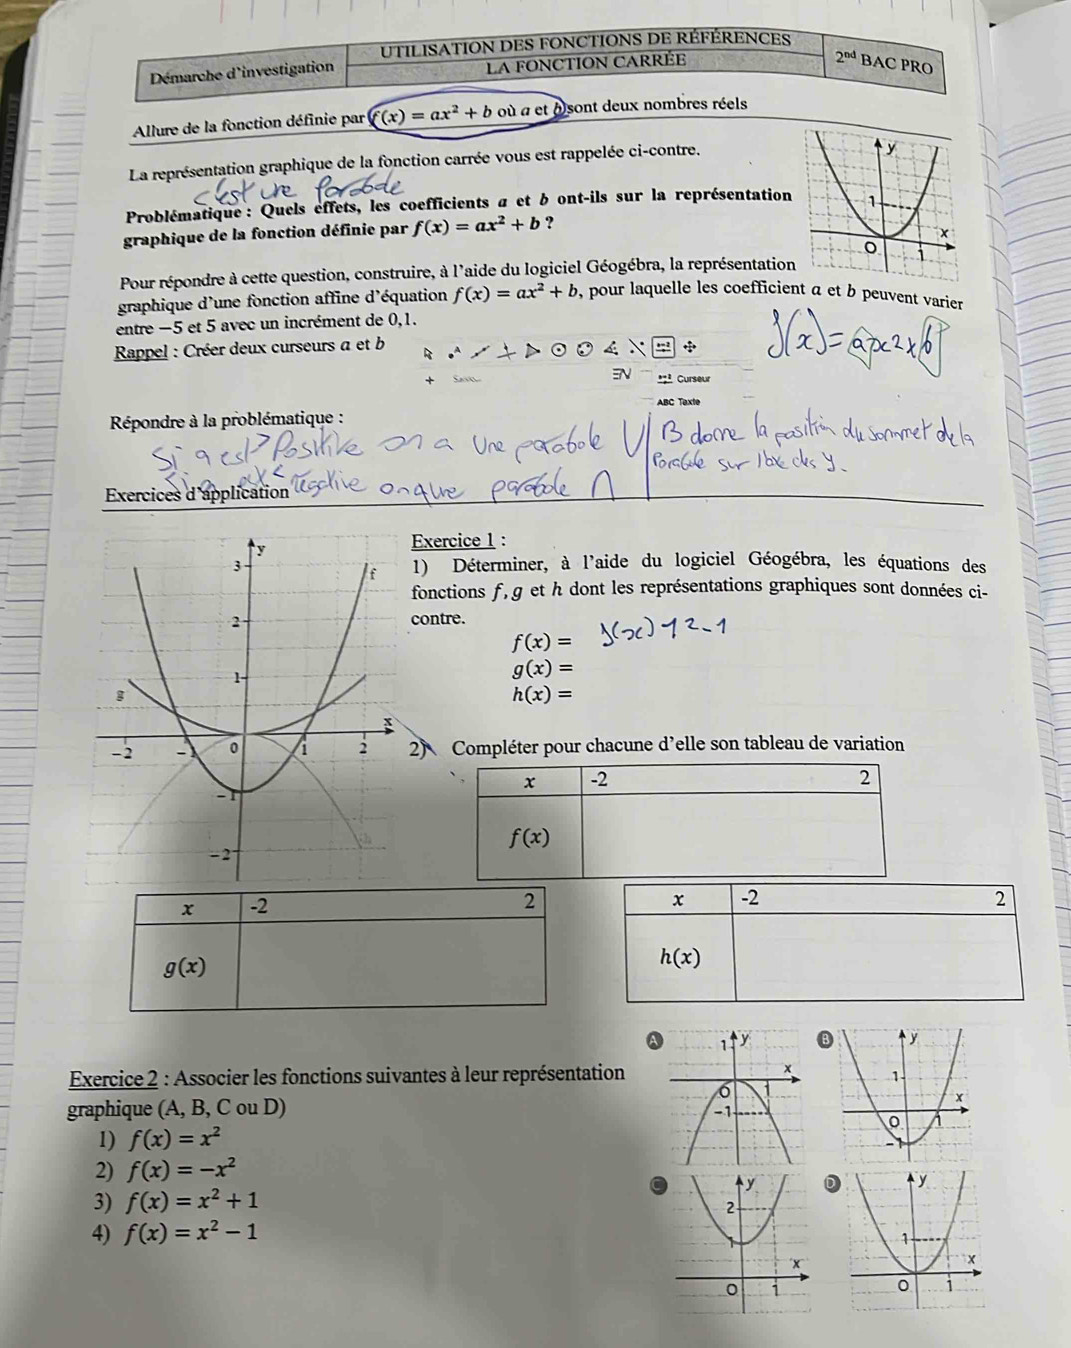 Démarche d'investigation
UTILISATION DES FONCTIONS DE RÉFÉRENCES
LA FONCTION CARRÉE
2nd BAC PRO
Allure de la fonction définie par f(x) = ax² + b où a et b sont deux nombres réels
La représentation graphique de la fonction carrée vous est rappelée ci-contre.
c'est une Parabole
Problématique : Quels effets, les coefficients a et b ont-ils sur la représentation
graphique de la fonction définie par f(x) = ax² + b ?
y
1
x
O
1
Pour répondre à cette question, construire, à l'aide du logiciel Géogébra, la représentation
graphique d'une fonction affine d'équation f(x) = ax² + b, pour laquelle les coefficient a et b peuvent varier
entre −5 et 5 avec un incrément de 0,1.
Rappel : Créer deux curseurs a et b
f(x)=ax2x b
a=2
EN
a=2 Curseur
ABC Texte
Répondre à la problématique :
Si a est > Positive on a Une parabole U
B donne la position du sommet de la
Parabole sur l'axe des y.
Si a est < négative on a une parabole ∩
Exercices d'application
Exercice 1 :
1) Déterminer, à l'aide du logiciel Géogébra, les équations des
fonctions f, g et h dont les représentations graphiques sont données ci-
contre.
f(x) = f(x) 12-1
g(x) =
h(x) =
y
3
f
2
1
g
x
−2
−1
0
1
2
−1
h
−2
2) Compléter pour chacune d'elle son tableau de variation
x -2 2
f(x)
x -2 2
g(x)
x -2 2
h(x)
Exercice 2 : Associer les fonctions suivantes à leur représentation
graphique (A, B, C ou D)
1) f(x) = x²
2) f(x) = −x²
3) f(x) = x² + 1
4) f(x) = x² − 1
A
1
y
x
O
1
−1
B
y
1
x
O
1
−1
C
y
2
1
x
O
1
D
y
1
x
O
1